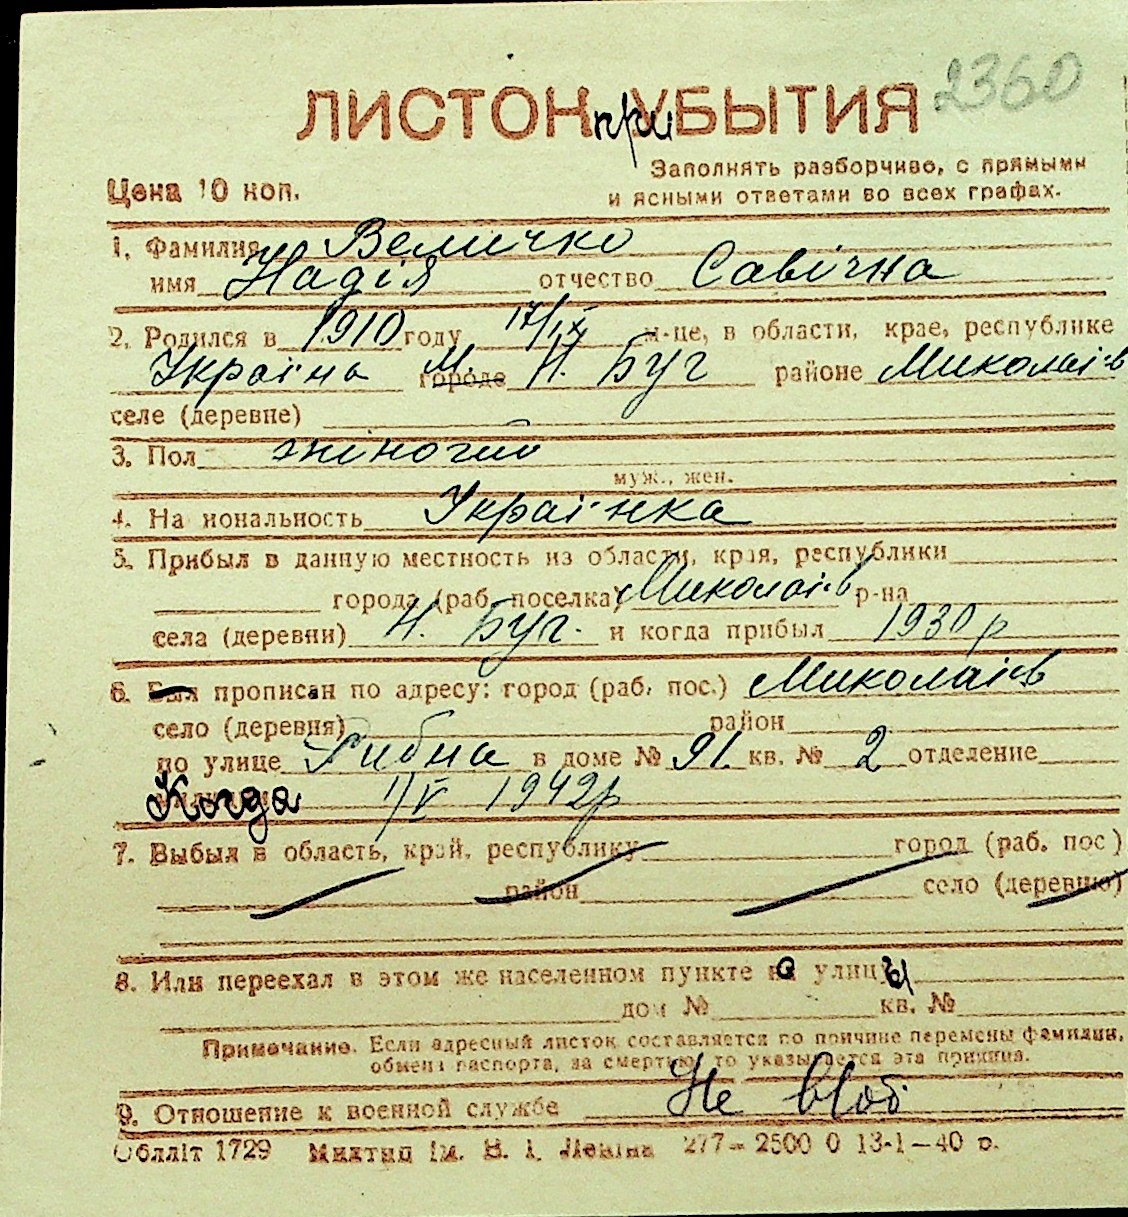 2360
ЛИСТОН при УБЫТИЯ
Заполнять разборчиво, с прямыми
Цена 10 коп.
и ясными ответами во всех графах.
1. Фамилия Величко
имя Надія отчество Савічна
2. Родился в 1910 году 17/IX м-це, в области, крае, республике
Україна городе М. Н. Буг районе Миколаїв
селе (деревне)
3. Пол жіночий
муж., жен.
4. На иональность Українка
5. Прибыл в данную местность из области, края, республики
города (раб. поселка) Миколаїв р-на
села (деревни) Н. Буг. и когда прибыл 1930 р
6. Был прописан по адресу: город (раб. пос.) Миколаїв
село (деревня) район
по улице Рибна в доме № 91 кв. № 2 отделение
Когда 1/V 1942р
7. Выбыл в область, край, республику город (раб. пос)
район село (деревню)
8. Или переехал в этом же населенном пункте на улицы
дом № кв. №
Примечание. Если адресный листок составляется по причине перемены фамилии,
обмена паспорта, за смертью, то указывается эта причина.
9. Отношение к военной службе Не
Облліт 1729 ім. В. І. Леніна 277— 2500 0 13-1—40 р.